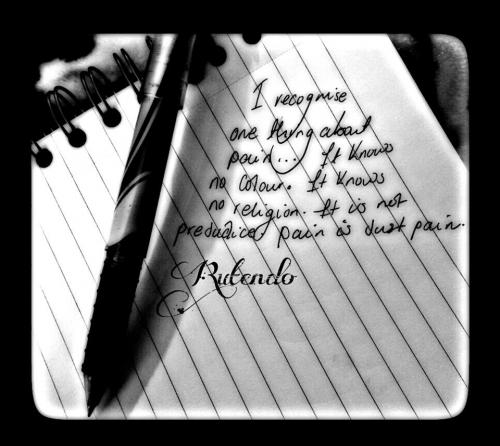 I recognise
one thing about
pain... It knows
no Colour. It knows
no religion. It is not
predudice, pain is Just pain..
Rutendo